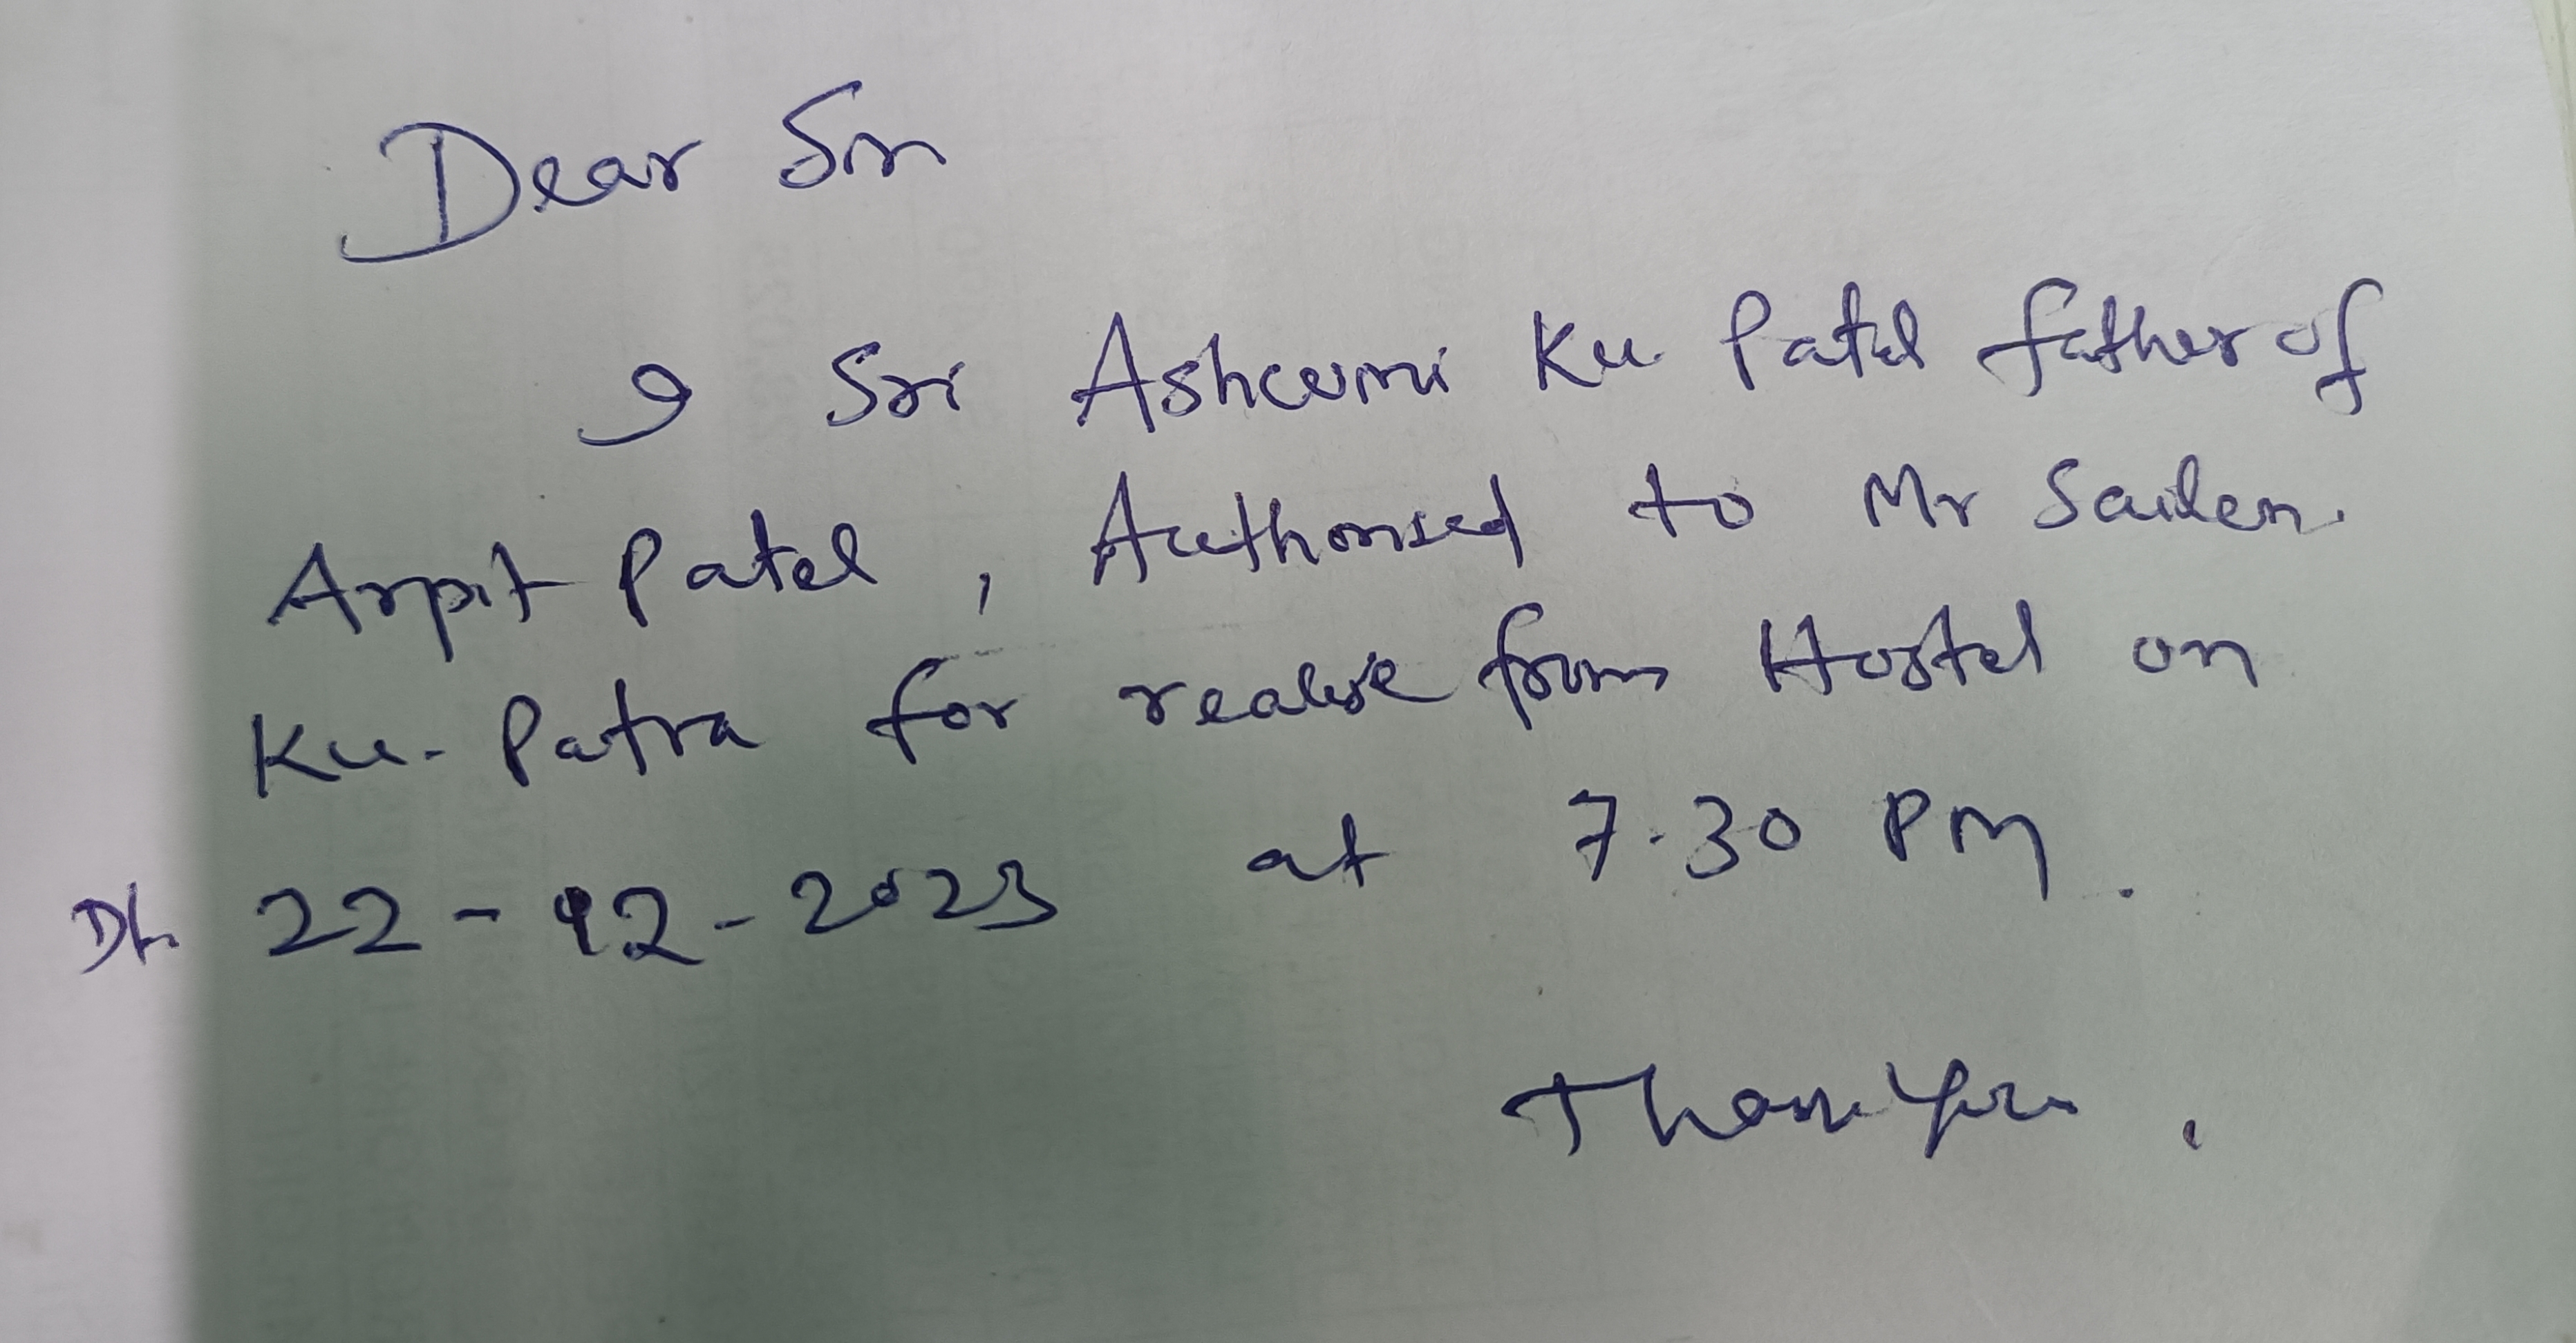 Dear Sir
I Sri Ashwini Ku Patel father of
Arpit Patel, Authorised to Mr Sailen
Ku. Patra for realise from Hostel on
Dt. 22-12-2023 at 7.30 PM.
Thank you.